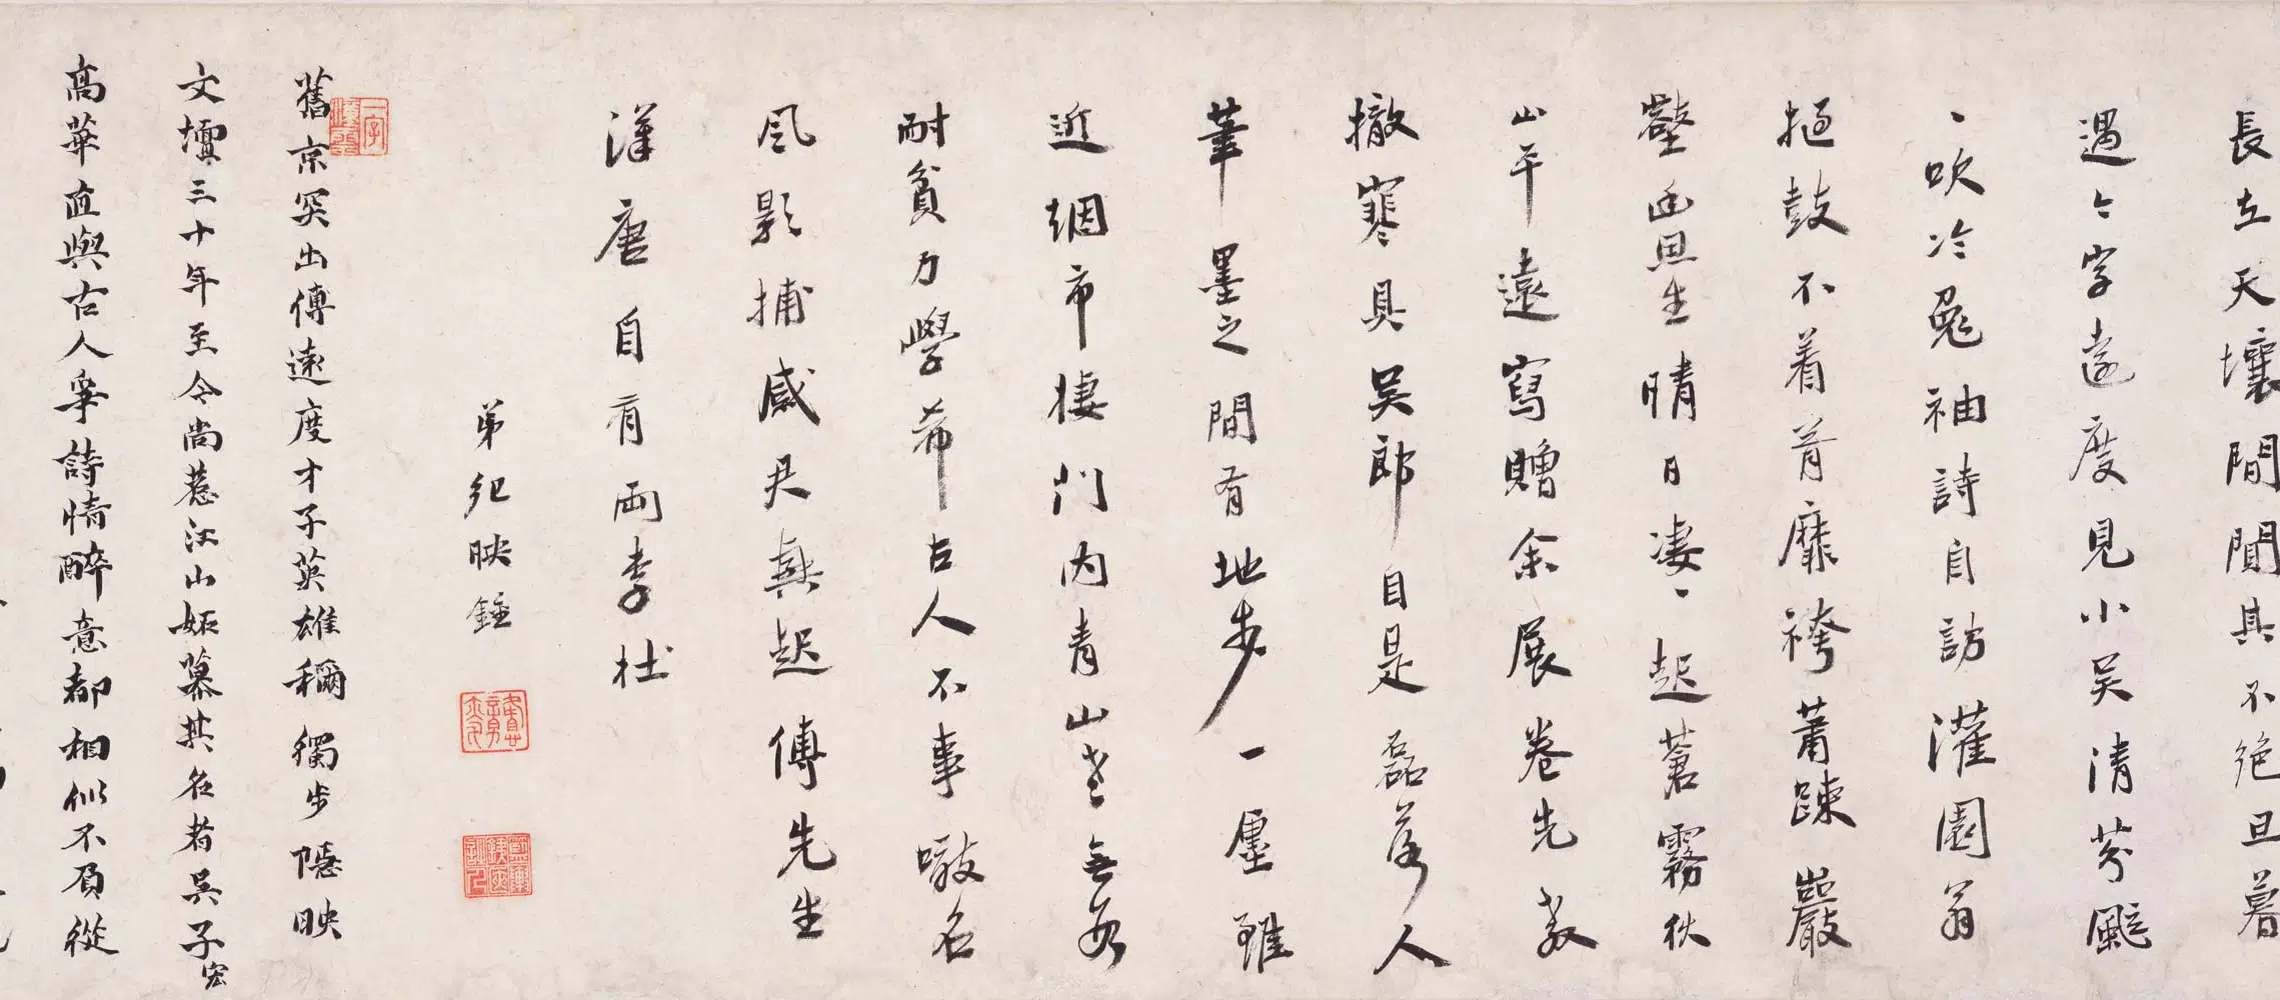 長立天壤間聞其不絕旦暮
遇〻字遠度見小吳清芬颸
一吹冷兔袖詩自訪灌園翁
撾鼓不着首靡袴蕭踈巖
壑幽思生晴日凄〻起蒼霧秋
山平遠寫贈余展卷先教
撤寒具吴郎自是磊落人
筆墨之間有地步一廛雖
近烟市棲門内青山老無数
耐貧力學希古人不事噉名
風影捕感君興起傅先生
漢唐自有兩李杜
弟紀映鍾
舊京突出傅遠度才子英雄稱獨步隱映
文壇三十年至今尚惹江山妬慕其名者吳子宏
高華直與古人爭詩情醉意都相似不負從